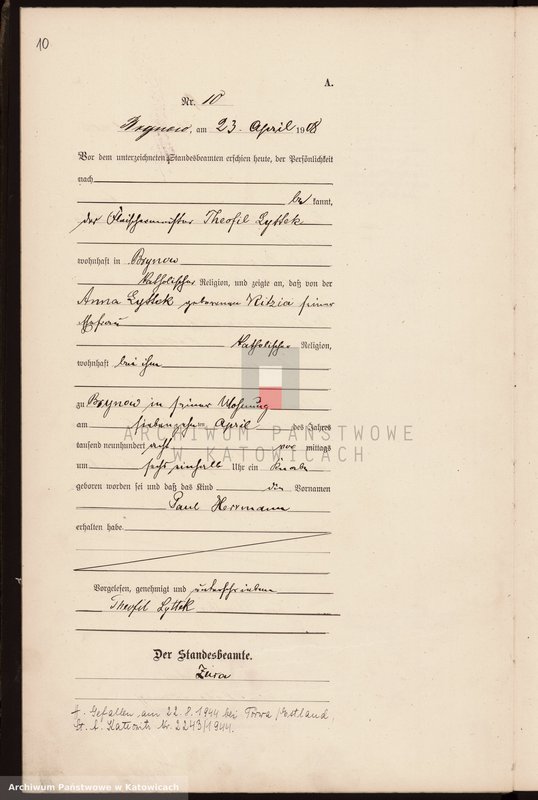 10
A.
Nr. 10
Brynow, am 23. April 1908
Vor dem unterzeichneten Standesbeamten erschien heute, der Persönlichkeit
nach
bekannt,
der Fleischermeister Theofil Lyttek
wohnhaft in Brynow
katholischer Religion, und zeigte an, daß von der
Anna Lyttek geborenen Kitzia seiner
Ehefrau
katholischer Religion,
wohnhaft bei ihm
zu Brynow in seiner Wohnung
am siebenzehnten April des Jahres
tausend neunhundert acht vor mittags
um sechs einhalb Uhr ein Knabe
geboren worden sei und daß das Kind die Vornamen
Paul Herrmann
erhalten habe.
Vorgelesen, genehmigt und unterschrieben
Theofil Lyttek
Der Standesbeamte.
†. Gefallen am 22.8.1944 bei /Estland
St. A. Kattowitz Nr. 2243/1944.
ARCHIWUM PAŃSTWOWE
W KATOWICACH
Archiwum Państwowe w Katowicach